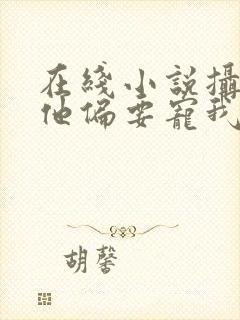 在綫小説攝
他偏要寵我
胡馨